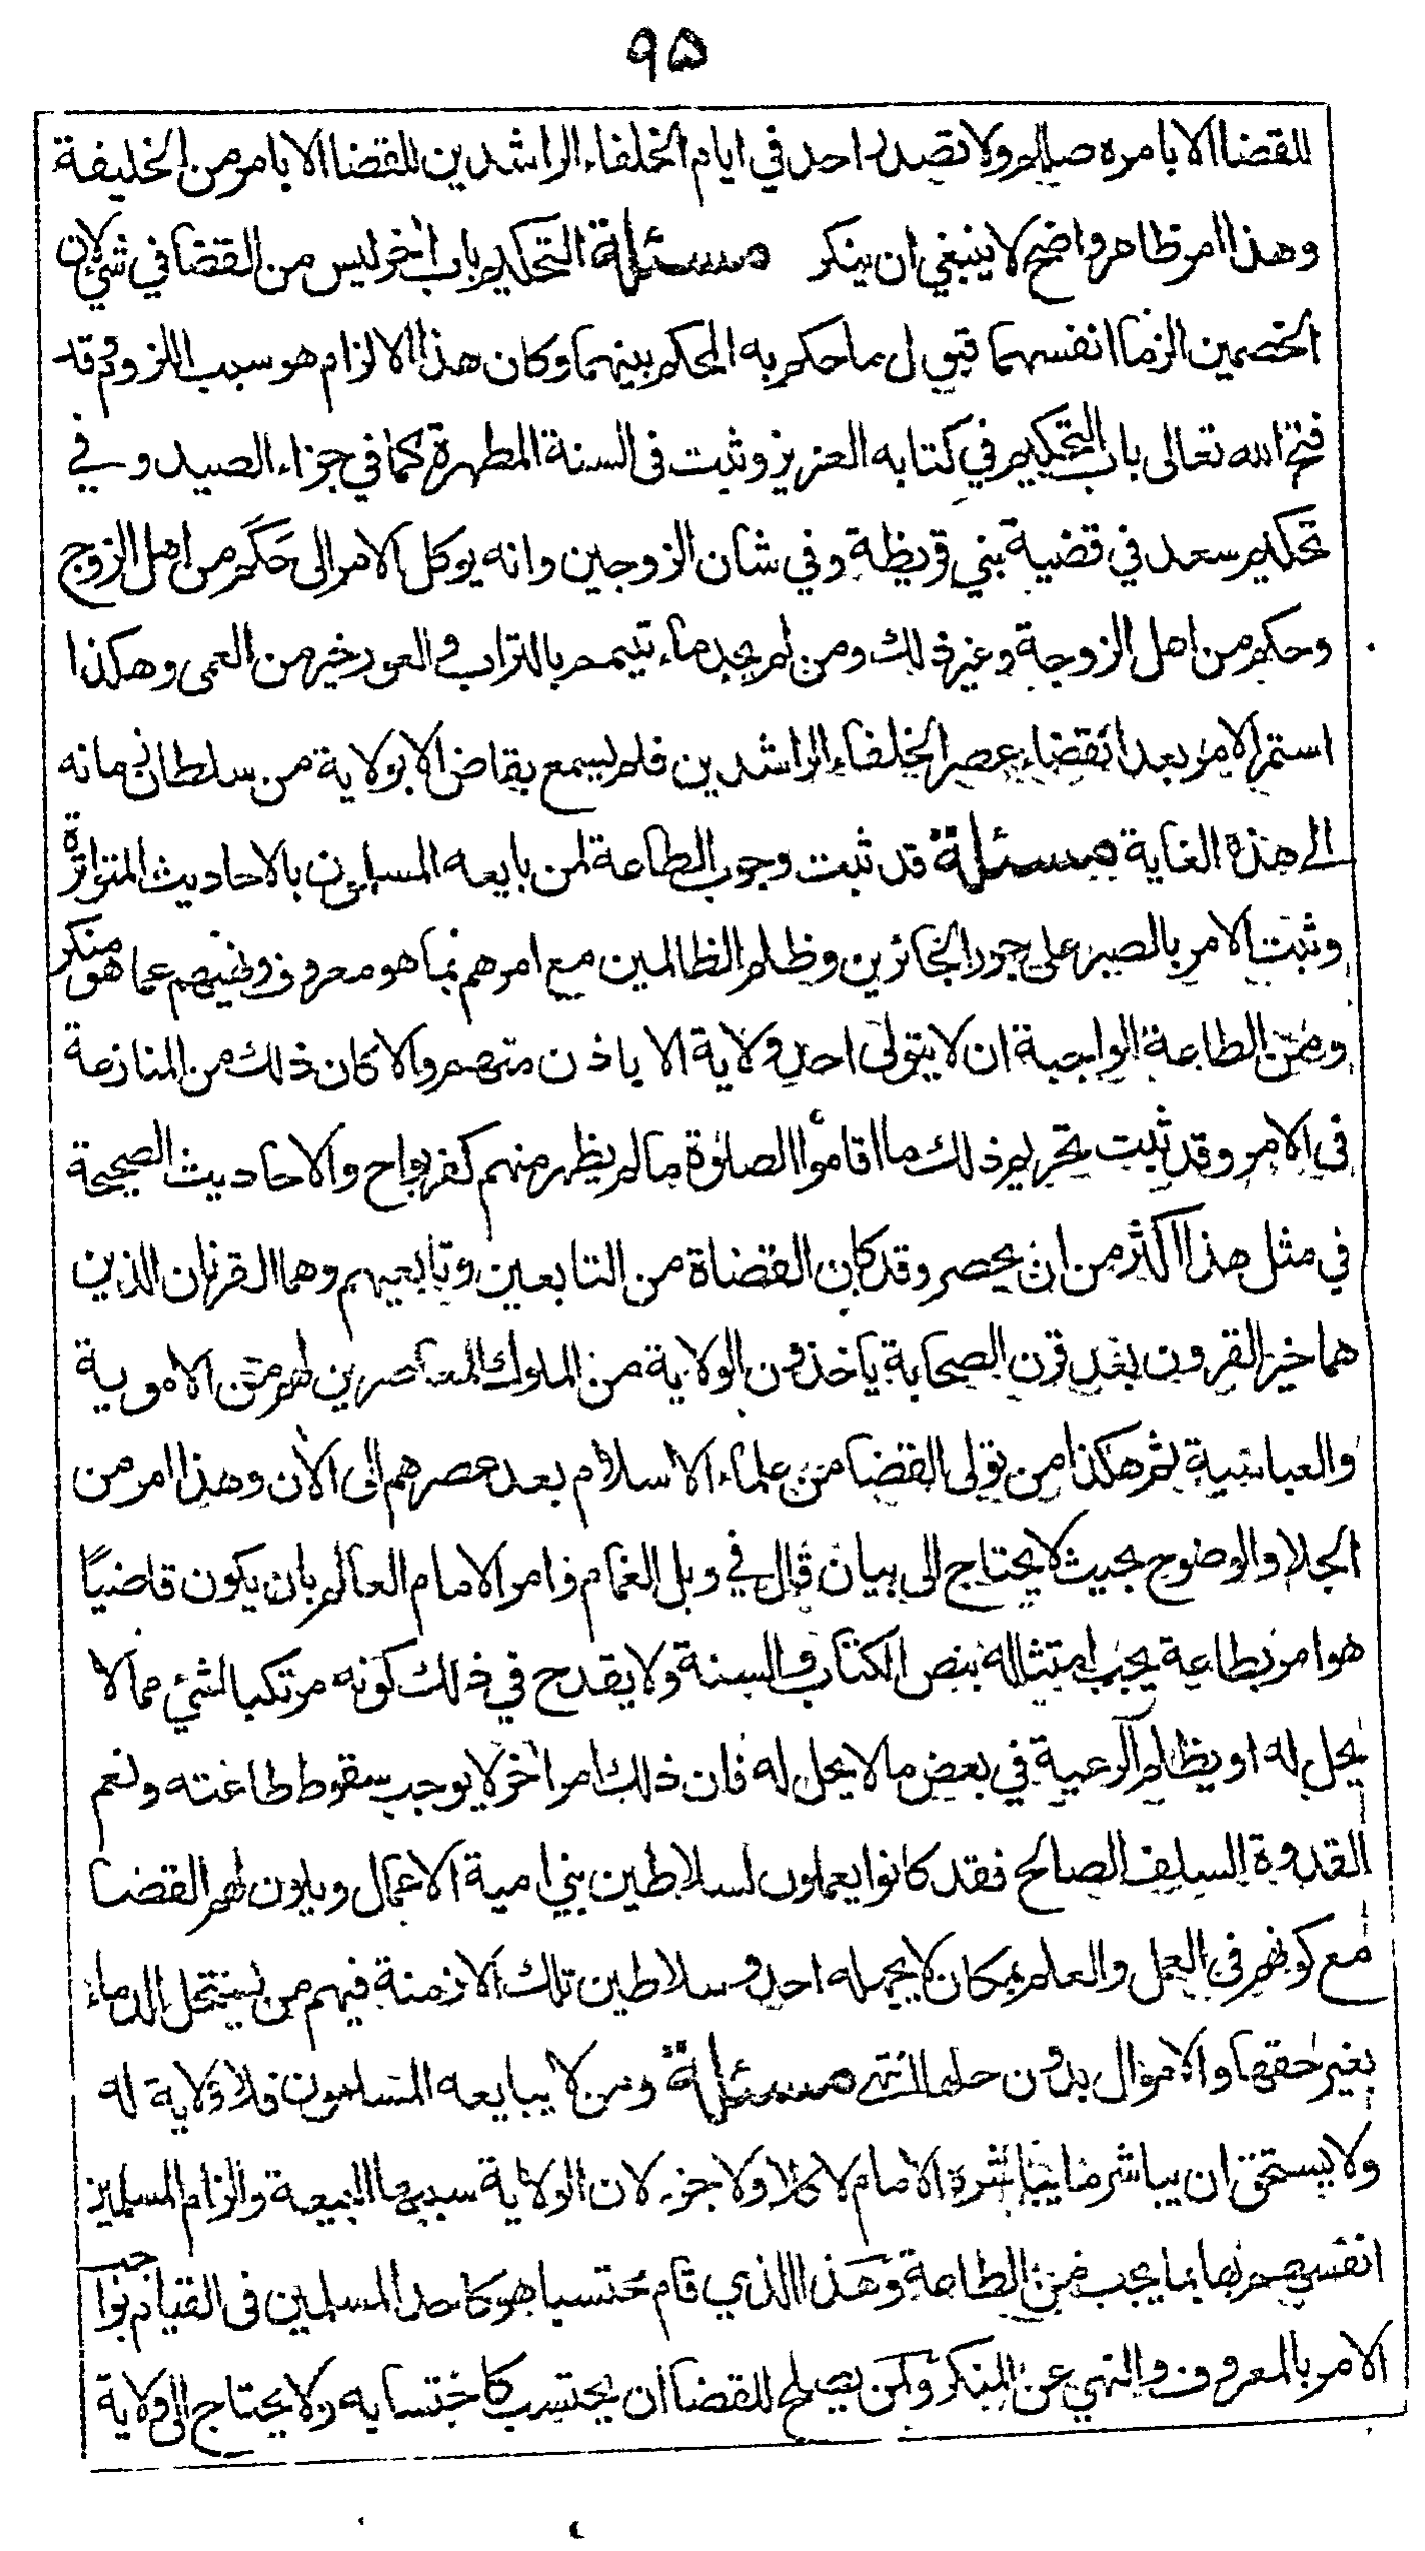 ٩۵
للقضا الا بامره صللم ولا تصدر احد في ايام الخلفاء الراشدين للقضا الا بامر من الخليفة
وهذا امر ظاهر واضح لا ينبغي ان ينكر مسئلة التحكيم باب اخر ليس من القضا في شئ لان
الخصمين الزما انفسهما قبول ما حكم به المحكم بينهما وكان هذا الالزام هو سبب اللزوم وقد
فتح الله تعالى باب التحكيم في كتابه العزيز وثبت فى السنة المطهرة كما في جزاء الصيد وفي
تحكيم سعد في قضية بني قريظة وفي شان الزوجين وانه يوكل الامر الى حَكَم من اهل الزوج
وحكم من اهل الزوجة وغير ذلك ومن لم يجد ماء تيمم بالتراب والعور خير من العمى وهكذا
استمر الامر بعد انقضاء عصر الخلفاء الراشدين فلم يسمع بقاض الا بولاية من سلطان زمانه
الى هذه الغاية مسئلة قد ثبت وجوب الطاعة لمن بايعه المسلمون بالاحاديث المتواترة
وثبت الامر بالصبر على جور الجائرين وظلم الظالمين مع امرهم بما هو معروف ونهيهم عما هو منكر
ومن الطاعة الواجبة ان لا يتولى احد ولاية الا باذن منهم والا كان ذلك من المنازعة
فى الامر وقد ثبت تحريم ذلك ما اقاموا الصلوة ما لم يظهر منهم كفر بواح والاحاديث الصحيحة
في مثل هذا اكثر من ان يحصر وقد كان القضاة من التابعين وتابعيهم وهما القرنان الذين
هما خير القرون بعد قرن الصحابة ياخذون الولاية من الملوك المعاصرين لهم من الاموية
والعباسية ثم هكذا من تولى القضا من علماء الاسلام بعد عصرهم الى الآن وهذا امر من
الجلاء والوضوح بحيث لا يحتاج الى بيان قال في وبل الغمام وامر الامام العالم بان يكون قاضيًا
هو امر بطاعة يجب امتثاله بنص الكتاب والسنة ولا يقدح في ذلك كونه مرتكبا لشئ مما لا
يحل له او يظلم الرعية في بعض ما لا يحل له فان ذلك امر اخر لا يوجب سقوط طاعته ونعم
القدوة السلف الصالح فقد كانوا يعملون لسلاطين بني امية الاعمال ويلون لهم القضا
مع كونهم فى العمل والعلم بمكان لا يجهله احد وسلاطين تلك الازمنة فيهم من يستحل الدماء
بغير حقها والاموال بدون حلها انتهى مسئلة ومن لا يبايعه المسلمون فلا ولاية له
ولا يستحق ان يباشر ما يباشره الامام لا كلا ولا جزء لان الولاية سببها البيعة والزام المسلمين
انفسهم بها بما يجب من الطاعة وهذا الذي قام محتسبا هو كاحد المسلمين فى القيام بواجب
الامر بالمعروف والنهي عن المنكر ولمن يصلح للقضا ان يحتسب كاحتسابه ولا يحتاج الى ولاية